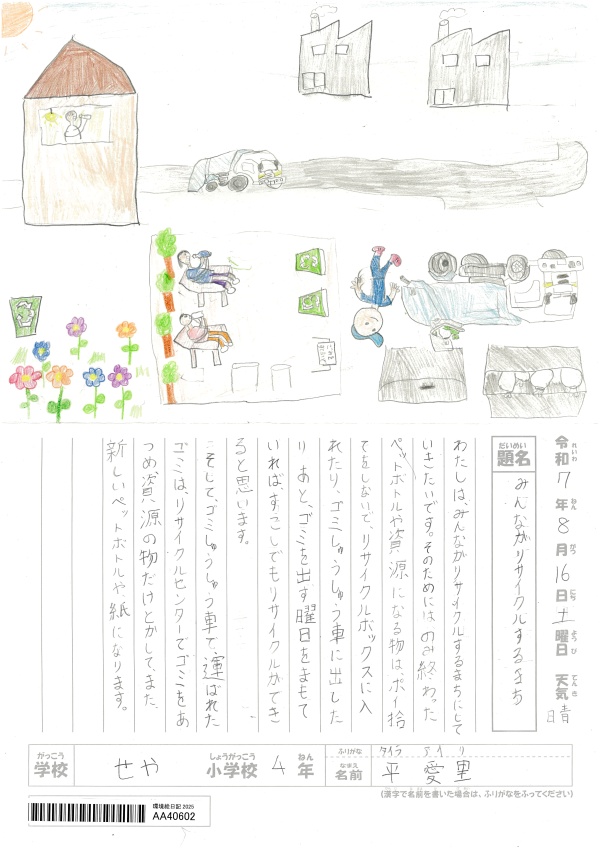 令和7年8月16日土曜日 天気 晴
れいわ ねん がつ にち ようび てんき
だいめい
題名 みんながリサイクルするまち
わたしは、みんながリサイクルするまちにして
いきたいです。そのためには、のみ終わった
ペットボトルや資源になる物はポイ捨
てをしないで、リサイクルボックスに入
れたり、ゴミしゅうしゅう車に出した
り あと、ゴミを出す曜日をまもて
いれば、すこしでもリサイクルができ
ると思います。
そして、ゴミしゅうしゅう車で、運ばれた
ゴミは、リサイクルセンターでゴミをあ
つめ資源の物だけとかして、また、
新しいペットボトルや、紙になります。
がっこう
学校 せや
しょうがっこう ねん
小学校 4年
ふりがな タイラ アイリ
なまえ
名前 平 愛里
(漢字で名前を書いた場合は、ふりがなをふってください)
環境絵日記 2025
AA40602